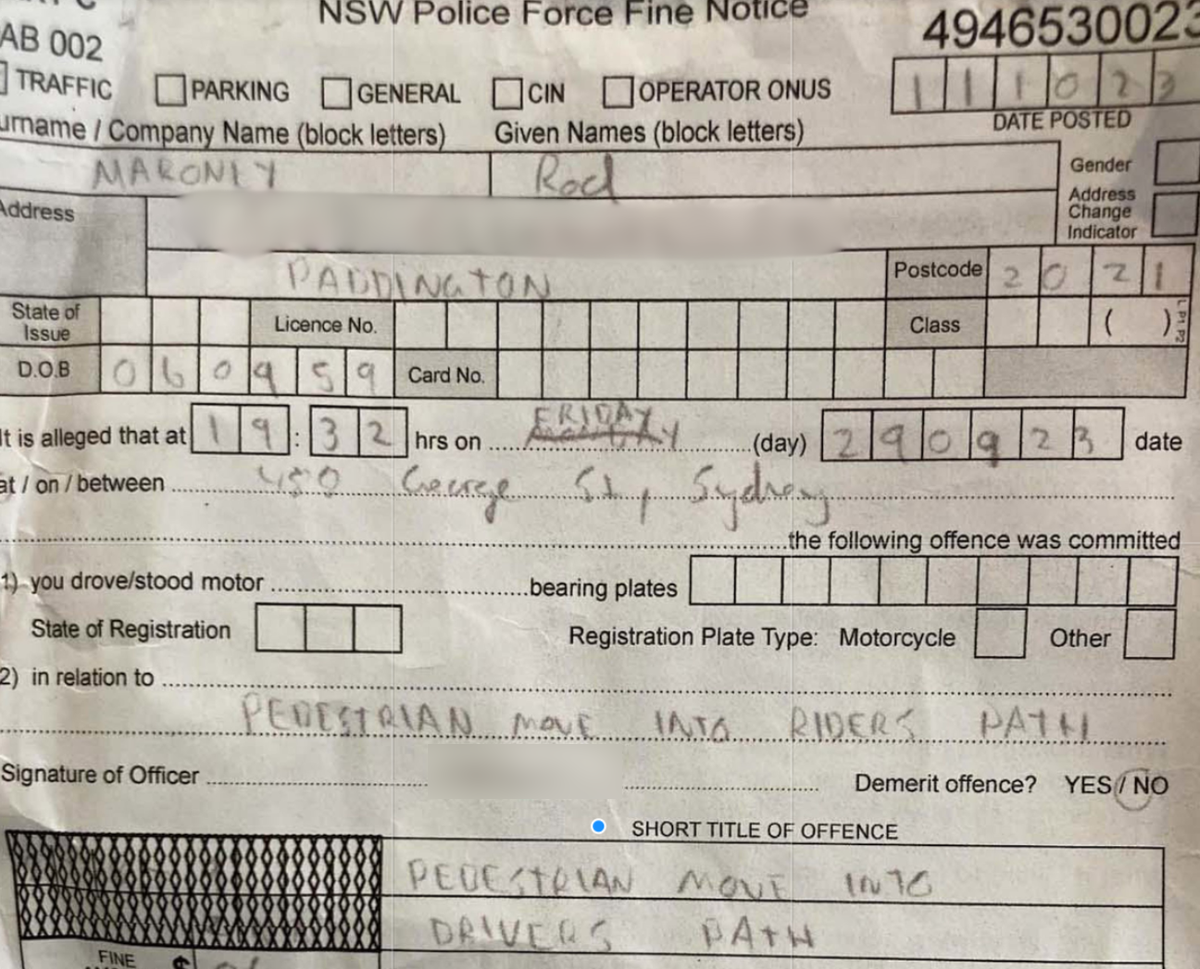 NSW Police Force Fine Notice
AB 002
4946530023
TRAFFIC PARKING GENERAL CIN OPERATOR ONUS
111023
DATE POSTED
urname / Company Name (block letters) Given Names (block letters)
MARONEY Rod
Gender
Address
Address Change Indicator
PADDINGTON Postcode 2021
State of Issue Licence No. Class ( )
D.O.B 060959 Card No.
It is alleged that at 19:32 hrs on FRIDAY (day) 290923 date
at / on / between 450 George St, Sydney
the following offence was committed
1) you drove/stood motor bearing plates
State of Registration Registration Plate Type: Motorcycle Other
2) in relation to
PEDESTRIAN MOVE INTO RIDERS PATH
Signature of Officer Demerit offence? YES / NO
SHORT TITLE OF OFFENCE
PEDESTRIAN MOVE INTO
DRIVERS PATH
FINE $